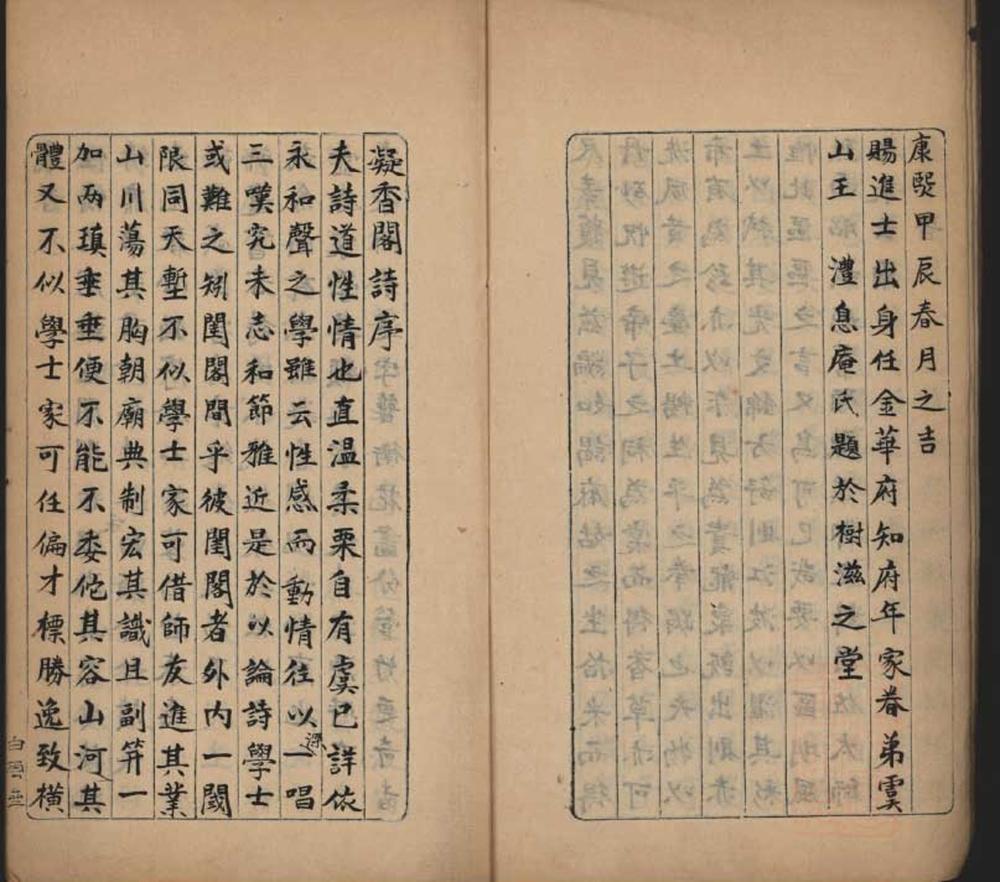 康熙甲辰春月之吉
賜進士出身任金華府知府年家眷弟虞
山王澧息庵氏題於樹滋之堂
凝香閣詩序
夫詩道性情也直温柔栗自有虞已詳依
永和聲之學雖云性感而動情往以一唱
深
三嘆究未志和節雅近是於以論詩學士
或難之矧閨閣間乎彼閨閣者外内一閾
限同天塹不似學士家可借師友進其業
山川蕩其胸朝廟典制宏其識且副笄一
加兩瑱垂垂便不能不委佗其容山河其
體又不似學士家可任偏才標勝逸致橫